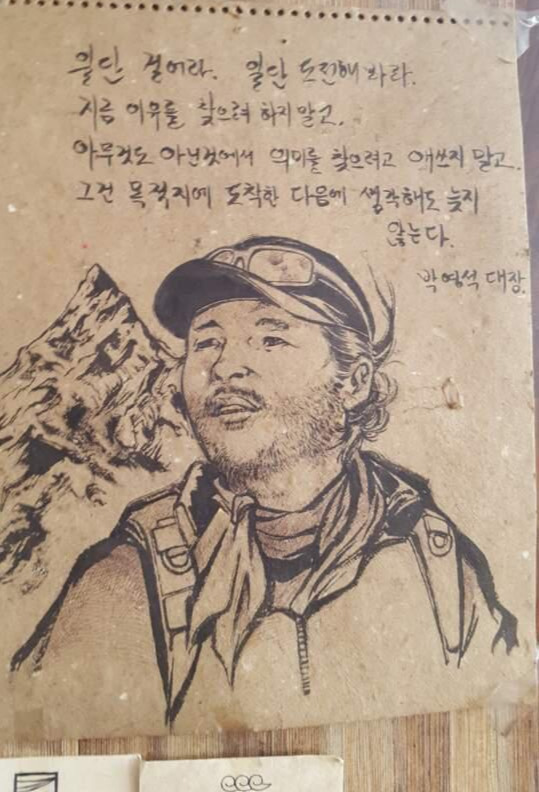 일단 걸어라. 일단 도전해 봐라.
지금 이유를 찾으려 하지 말고.
아무것도 아닌것에서 의미를 찾으려고 애쓰지 말고.
그건 목적지에 도착한 다음에 생각해도 늦지
않는다.
박영석 대장.